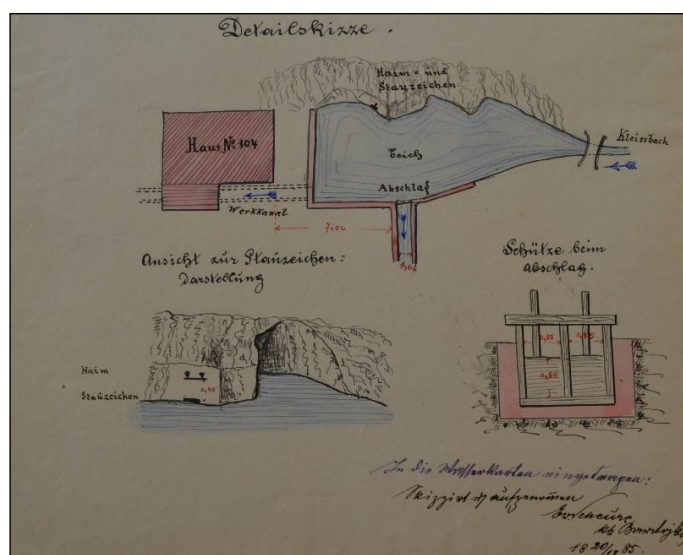 Detailskizze.
Haim= und
Stauzeichen
Haus No 304
Teich
Kleissbach
Abschlag
Werkkanal
7,00
Ansicht zur Stauzeichen=
Darstellung
Schütze beim
Abschlag.
Haim
Stauzeichen
0,55
In die Wasserkarten eingetragen:
Skizzirt & aufgenommen